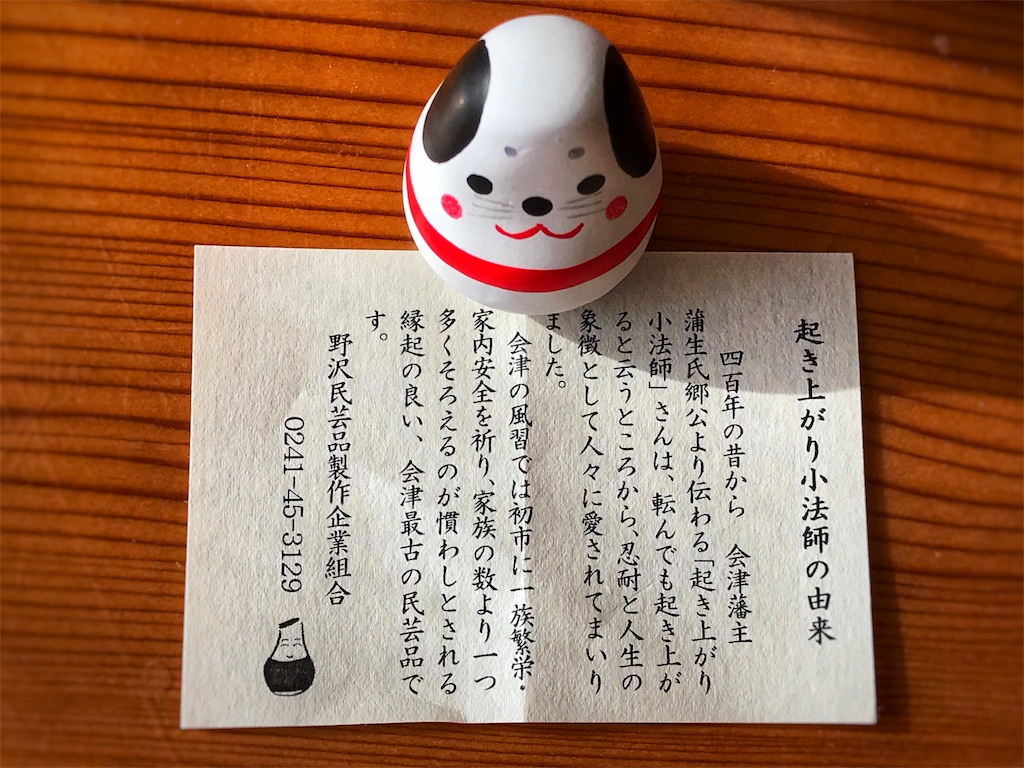 起き上がり小法師の由来
四百年の昔から　会津藩主
蒲生氏郷公より伝わる「起き上がり
小法師」さんは、転んでも起き上が
ると云うところから、忍耐と人生の
象徴として人々に愛されてまいり
ました。
会津の風習では初市に一族繁栄・
家内安全を祈り、家族の数より一つ
多くそろえるのが慣わしとされる
縁起の良い、会津最古の民芸品で
す。
野沢民芸品製作企業組合
0241-45-3129